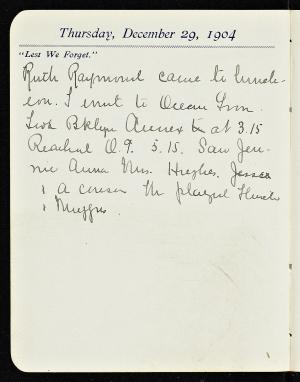 Thursday, December 29, 1904
"Lest We Forget."
Ruth Raymond came to lunch-
eon. I went to Ocean
Took Bklyn Annex at 3.15
Reached O.G. 5.15. Saw Jen-
nie Anna Mrs. Hughes. Jessea
a cousin We played Flinch